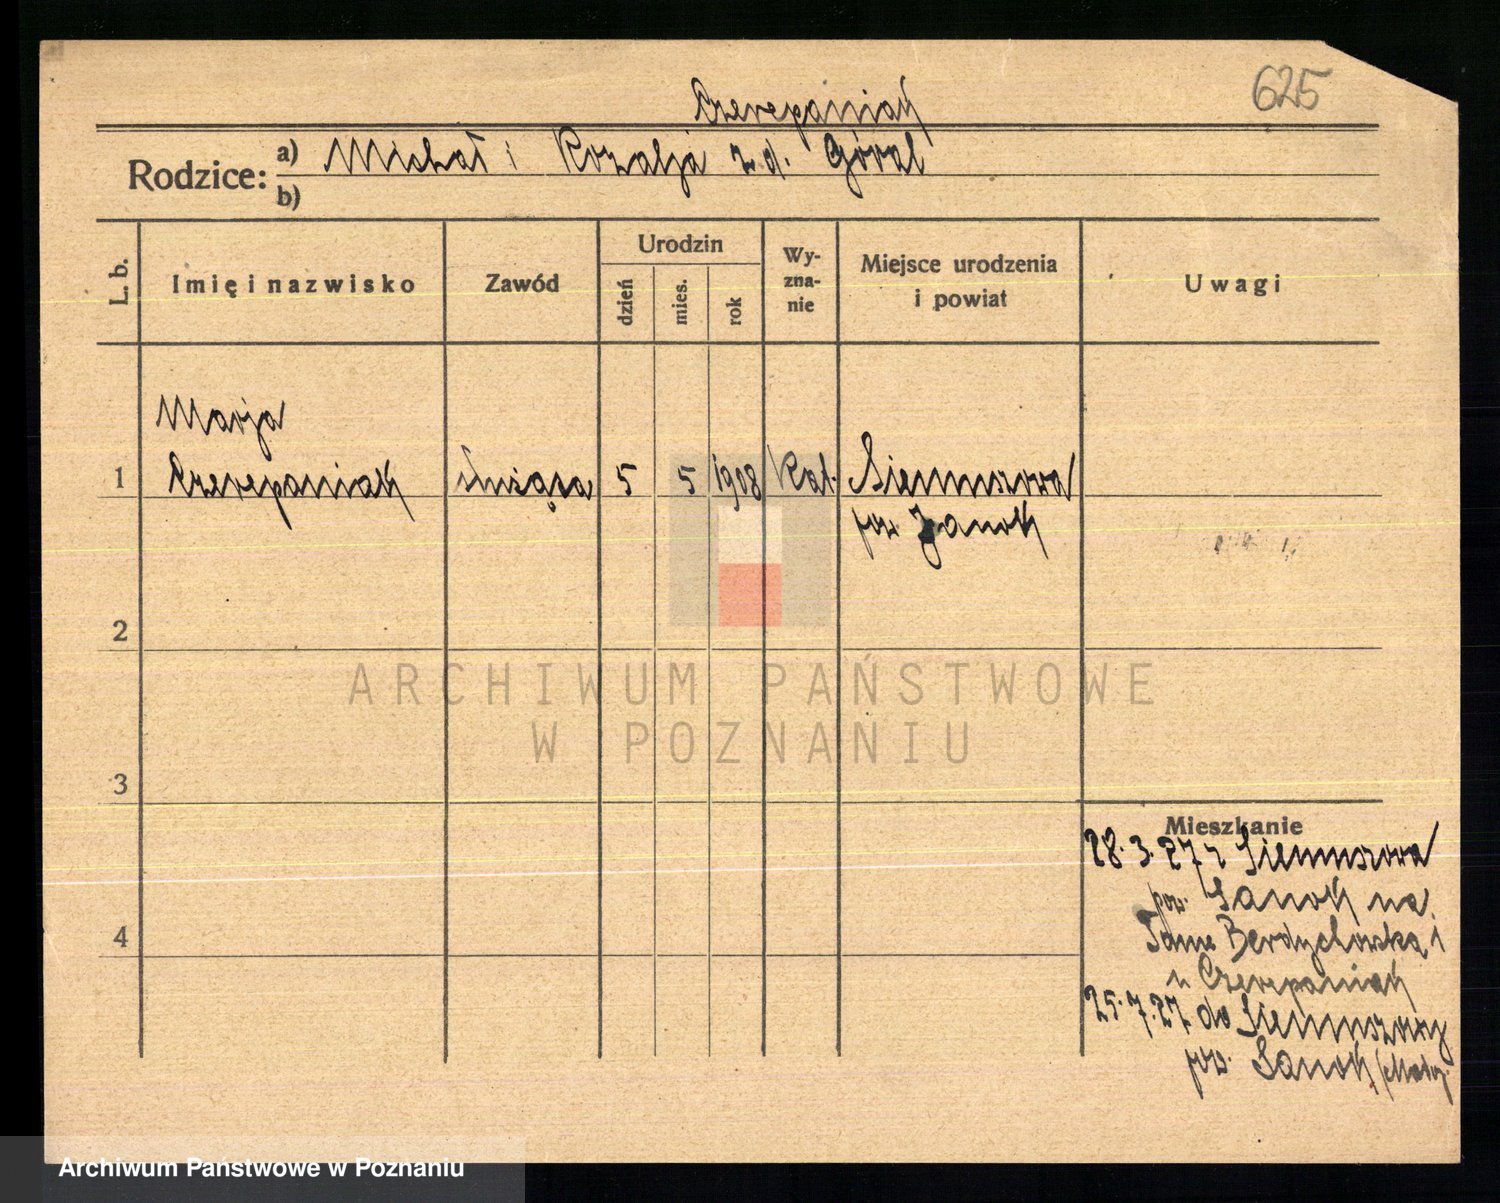 625
Czerepaniak
Rodzice: a) Michał i Rozalja z d. Góral
b)
L. b.
Imię i nazwisko
Zawód
Urodzin
dzień
mies.
rok
Wy-
zna-
nie
Miejsce urodzenia
i powiat
Uwagi
Marja
1 Czerepaniak służąca 5 5 1908 Kat. Siemuszowa
pow. Sanok
2
3
4
ARCHIWUM PAŃSTWOWE
W POZNANIU
Mieszkanie
28.3.27 z Siemuszowa
pow. Sanok na
Berdychowską
u Czerepaniak
25.7.27 do Siemuszowy
pow. Sanok
Archiwum Państwowe w Poznaniu